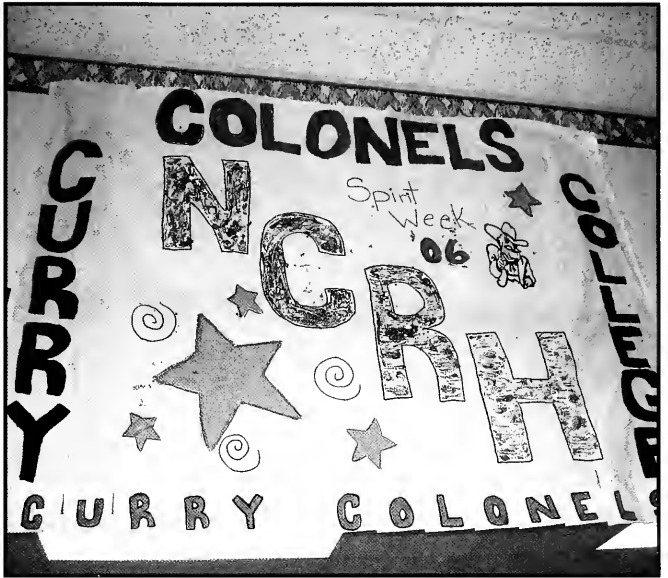 COLONELS
CURRY
NCRH
Spirit
Week
'06
COLLEGE
CURRY COLONELS